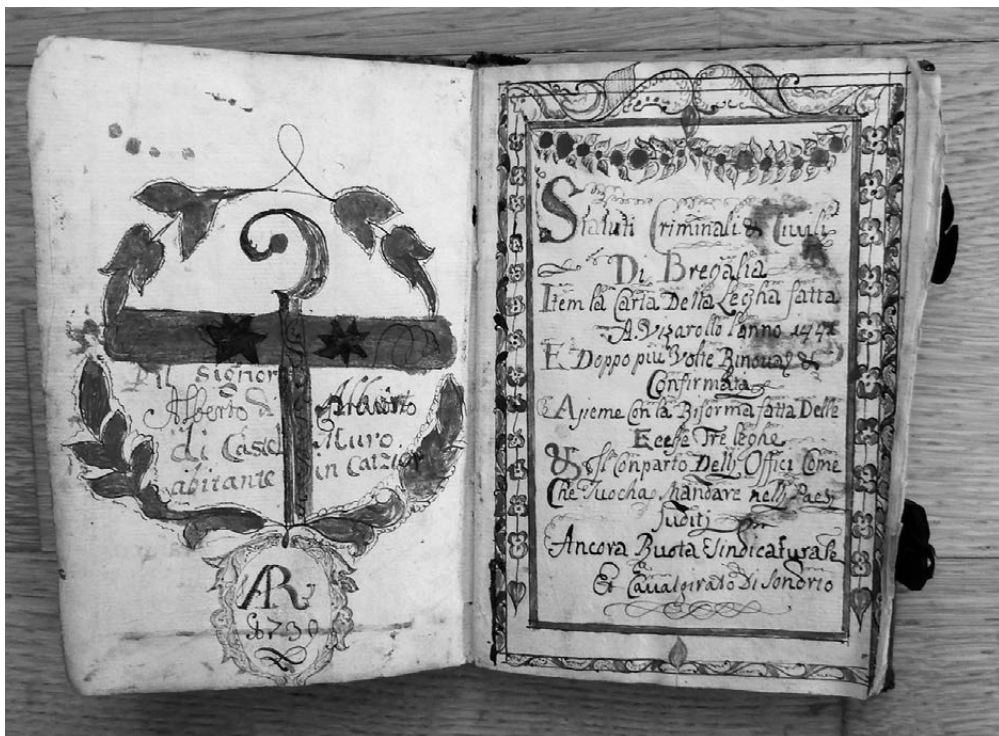 Il Signor
Alberto di
di Castel Muro
abitante in
AR
1730
Statuti Criminali & Civili
Di Bregalia
Item la Carta Della Legha fatta
A Vazarollo l'anno 1471
E Doppo più Volte Rinovat &
Confirmata
Asieme Con la Riforma fatta Delle
Ecelse Tre leghe
& Il Conparto Delli Offici Come
Che Tuocha Mandare nelli Paesi
Suditj
Ancora Ruota Sindicaturale
Et Cavalgirato Di Sondrio